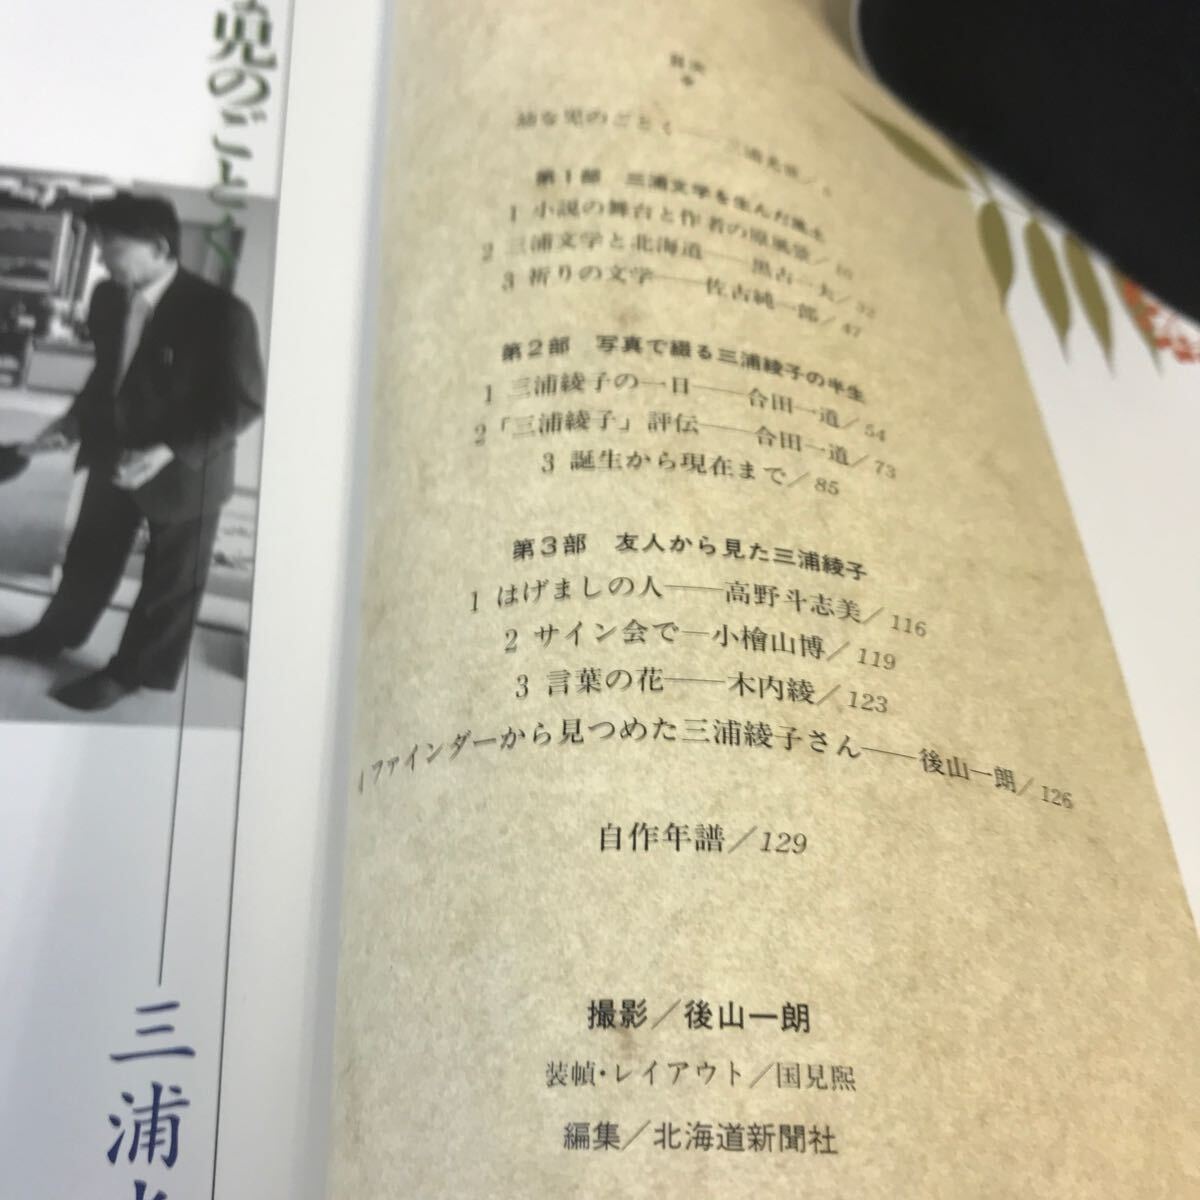 児のごとく
三浦
目次
幼な児のごとく――三浦光世／
第1部 三浦文学を生んだ風土
1 小説の舞台と作者の原風景／10
2 三浦文学と北海道――黒古一夫／32
3 祈りの文学――佐古純一郎／47
第2部 写真で綴る三浦綾子の半生
1 三浦綾子の一日――合田一道／54
2 「三浦綾子」評伝――合田一道／73
3 誕生から現在まで／85
第3部 友人から見た三浦綾子
1 はげましの人――高野斗志美／116
2 サイン会で―小檜山博／119
3 言葉の花――木内綾／123
ファインダーから見つめた三浦綾子さん――後山一朗／126
自作年譜／129
撮影／後山一朗
装幀・レイアウト／国見熙
編集／北海道新聞社